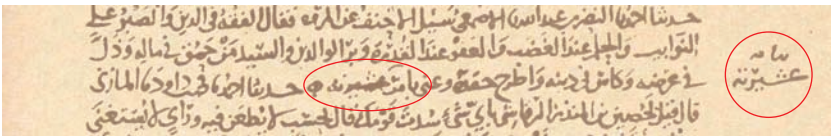 حدثنا احمد نا النضر بن عبد الله نا الاصمعي سئل الاحنف عن المروه فقال الفقه في الدين والصبر على
النوايب والحلم عند الغضب والعفو عند القدرة وبر الوالدين والسيد من حمق في ماله وذل
في عرضه وكاس في دينه واطرح حقده وعني بامر عشيرته حدثنا احمد نا محمد بن داود نا المازني
قال قيل لحصين بن المنذر الرقاشي باي شيء سدت قومك قال بحسب لا يطعن فيه وراي لا يستغنى
عشيرته